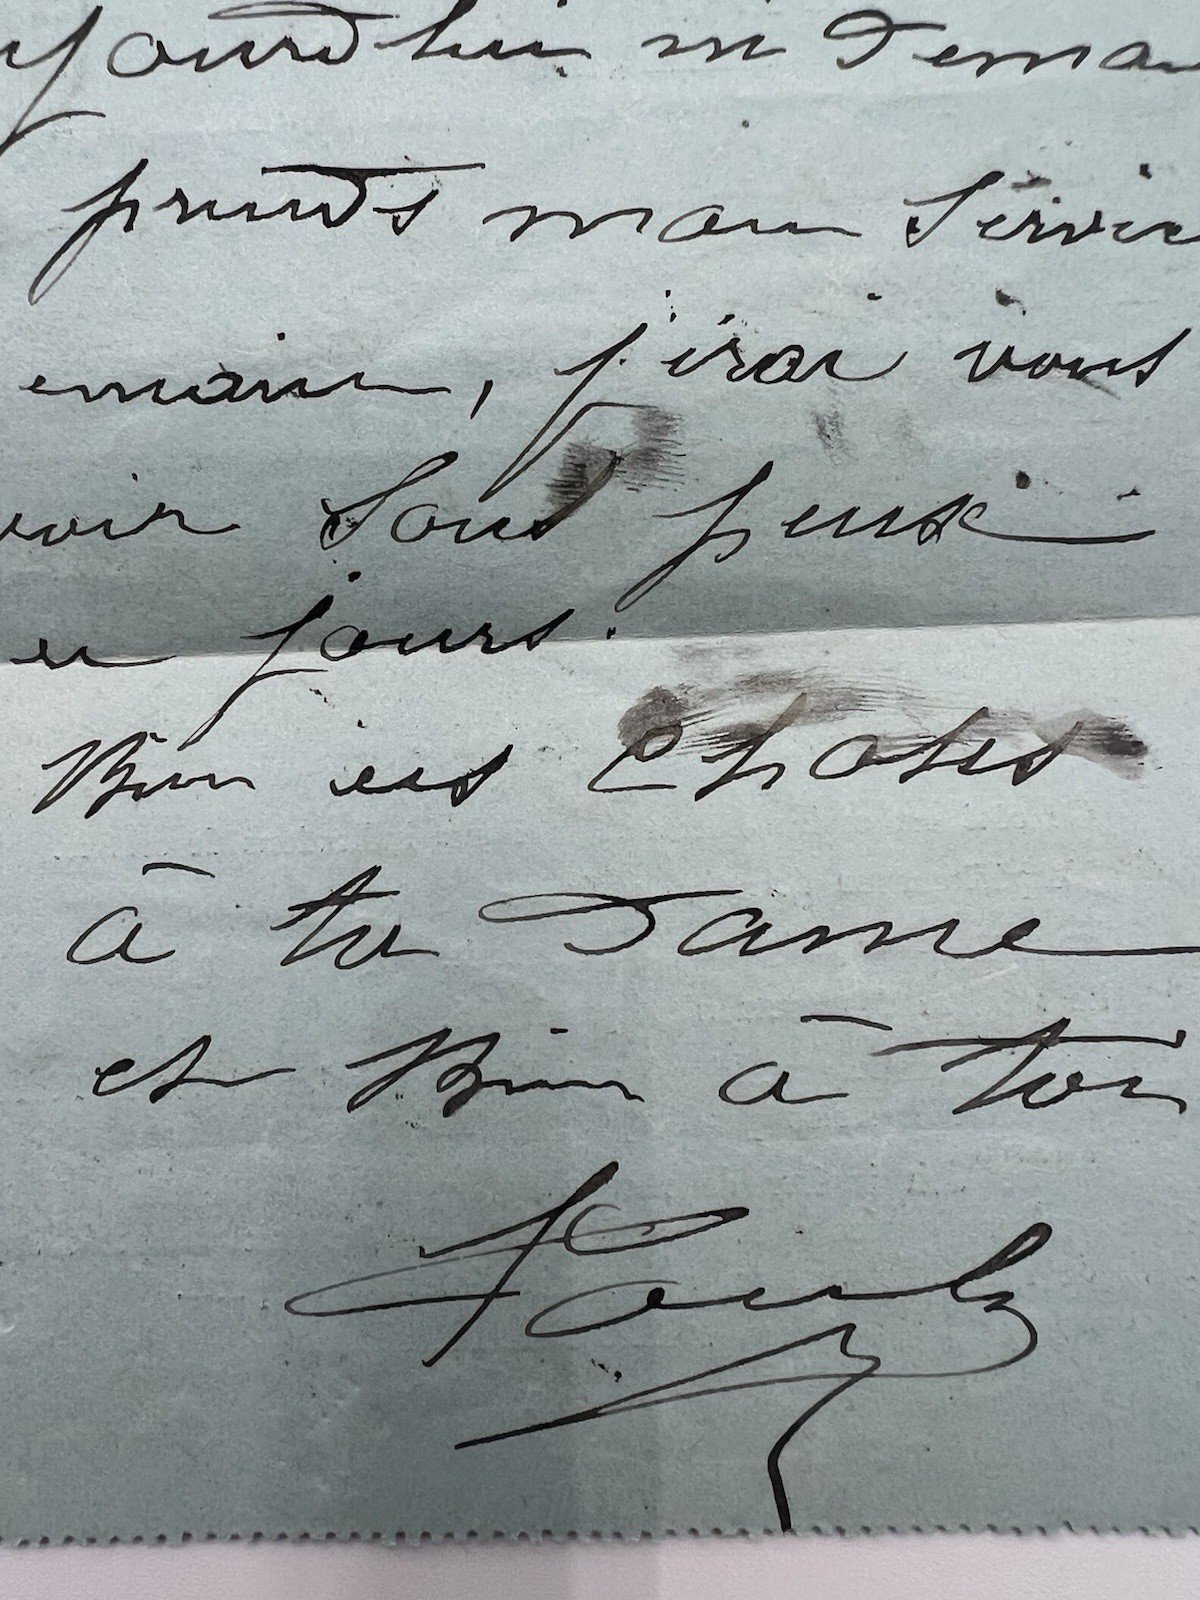 ujourd'hui ni demai
prends mon servic
emain, j'irai vous
voir sous peux
de jours.
Bien des choses
à ta Dame
et Bien à toi